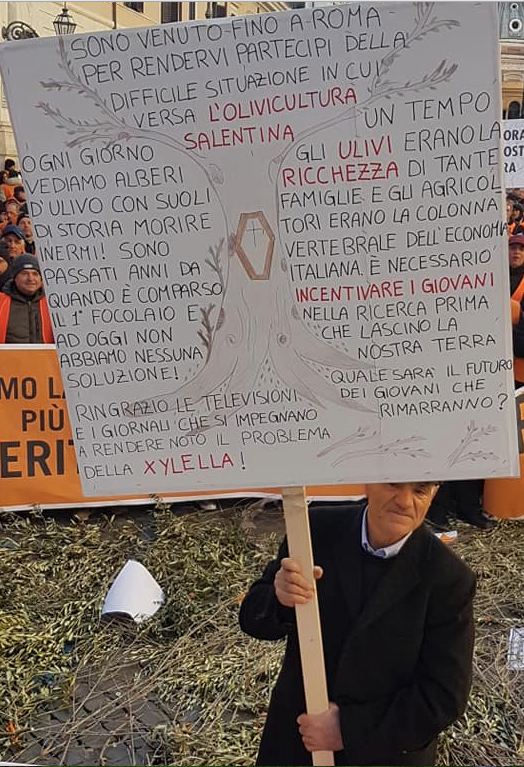 SONO VENUTO FINO A ROMA
PER RENDERVI PARTECIPI DELLA
DIFFICILE SITUAZIONE IN CUI
VERSA L'OLIVICULTURA
SALENTINA
OGNI GIORNO
VEDIAMO ALBERI
D'ULIVO CON SUOLI
DI STORIA MORIRE
INERMI! SONO
PASSATI ANNI DA
QUANDO È COMPARSO
IL 1° FOCOLAIO E
AD OGGI NON
ABBIAMO NESSUNA
SOLUZIONE!
UN TEMPO
GLI ULIVI ERANO LA
RICCHEZZA DI TANTE
FAMIGLIE E GLI AGRICOL
TORI ERANO LA COLONNA
VERTEBRALE DELL'ECONOMIA
ITALIANA. È NECESSARIO
INCENTIVARE I GIOVANI
NELLA RICERCA PRIMA
CHE LASCINO LA
NOSTRA TERRA
QUALE SARA' IL FUTURO
DEI GIOVANI CHE
RIMARRANNO?
RINGRAZIO LE TELEVISIONI
E I GIORNALI CHE SI IMPEGNANO
A RENDERE NOTO IL PROBLEMA
DELLA XYLELLA!
MO LA
PIÙ
ERIT
ORA
OST
RA